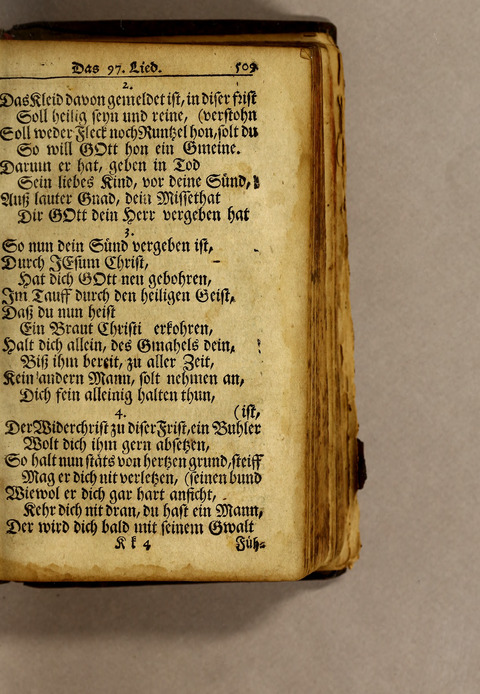 Das 97. Lied. 509
2.
Das Kleid davon gemeldet ist, in diser frist
Soll heilig seyn und reine, (verstohn
Soll weder Fleck noch Runtzel hon, solt du
So will GOtt hon ein Gmeine.
Darum er hat, geben in Tod
Sein liebes Kind, vor deine Sünd,
Auß lauter Gnad, dein Missethat
Dir GOtt dein Herr vergeben hat
3.
So nun dein Sünd vergeben ist,
Durch JEsum Christ,
Hat dich GOtt neu gebohren,
Im Tauff durch den heiligen Geist,
Daß du nun heist
Ein Braut Christi erkohren,
Halt dich allein, des Gmahels dein,
Biß ihm bereit, zu aller Zeit,
Kein andern Mann, solt nehmen an,
Dich fein alleinig halten thun,
4. (ist,
Der Widerchrist zu diser Frist, ein Buhler
Wolt dich ihm gern absetzen,
So halt nun stäts von hertzen grund, steiff
Mag er dich nit verletzen, (seinen bund
Wiewol er dich gar hart anficht,
Kehr dich nit dran, du hast ein Mann,
Der wird dich bald mit seinem Gwalt
K k 4 Füh-